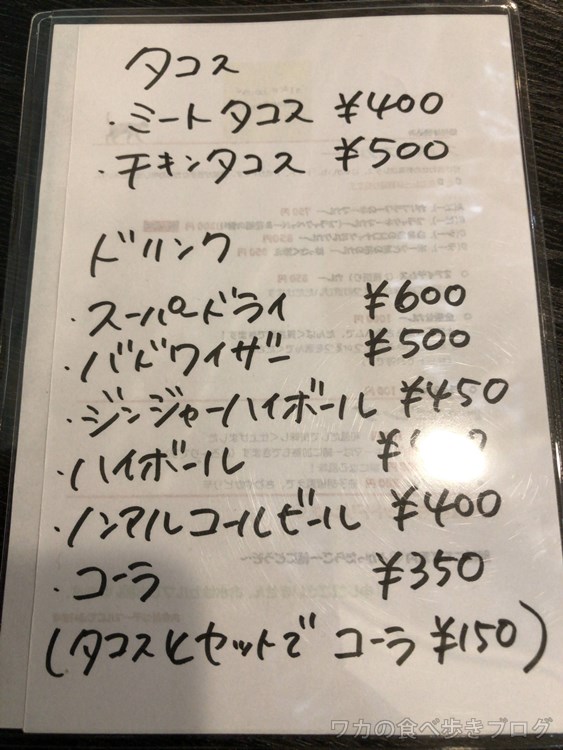 タコス
・ミートタコス ¥400
・チキンタコス ¥500
ドリンク
・スーパードライ ¥600
・バドワイザー ¥500
・ジンジャーハイボール ¥450
・ハイボール
・ノンアルコールビール ¥400
・コーラ ¥350
(タコスとセットで コーラ ¥150)
ワカの食べ歩きブログ